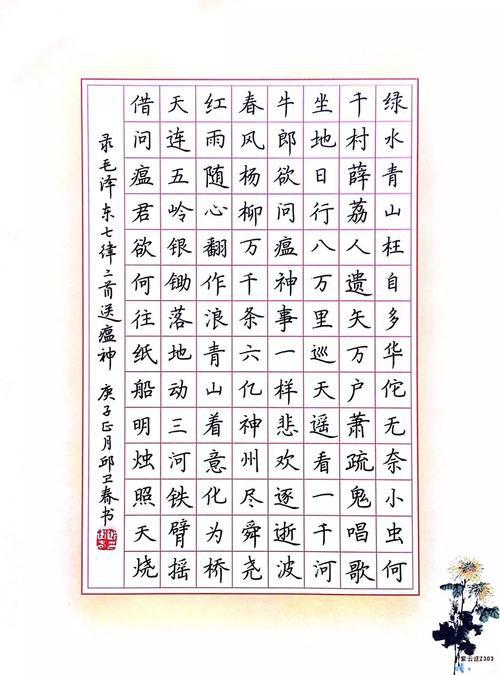 绿水青山枉自多华佗无奈小虫何
千村薜荔人遗矢万户萧疏鬼唱歌
坐地日行八万里巡天遥看一千河
牛郎欲问瘟神事一样悲欢逐逝波
春风杨柳万千条六亿神州尽舜尧
红雨随心翻作浪青山着意化为桥
天连五岭银锄落地动三河铁臂摇
借问瘟君欲何往纸船明烛照天烧
录毛泽东七律二首送瘟神 庚子正月邱卫春书
紫云庄Z303